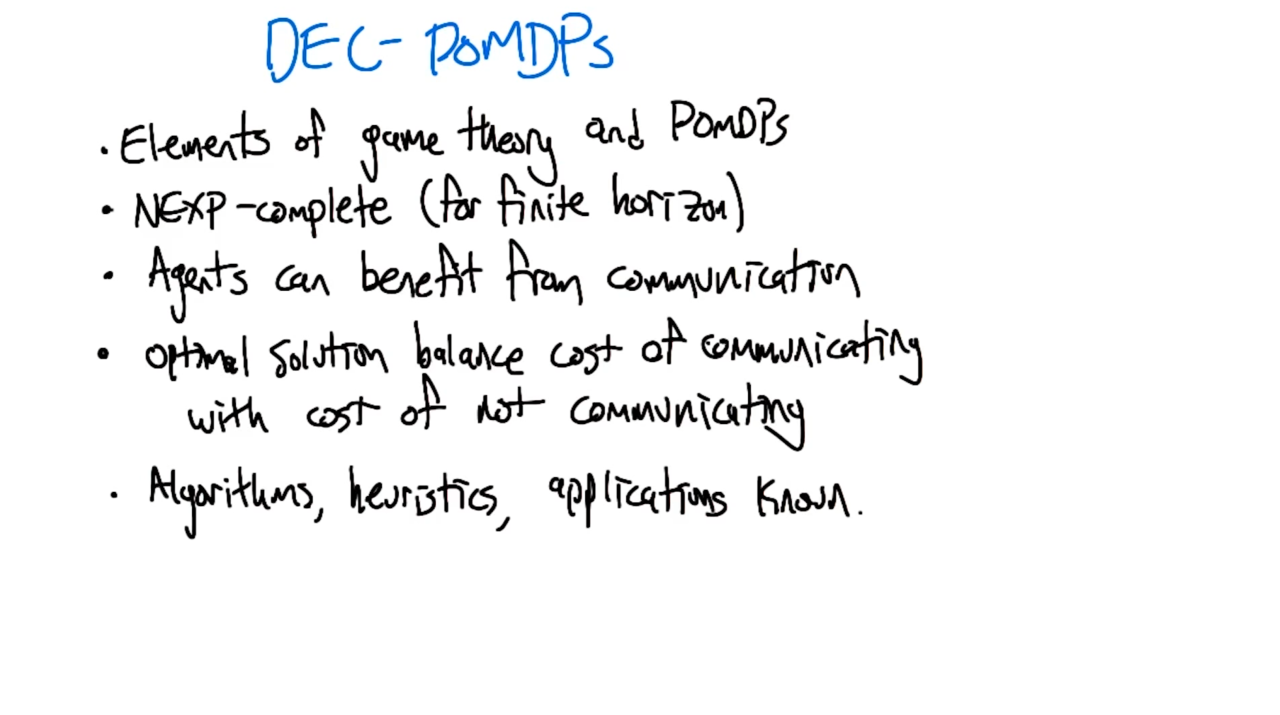 DEC-POMDPs
• Elements of game theory and POMDPs
• NEXP-complete (for finite horizon)
• Agents can benefit from communication
• optimal solution balance cost of communicating
with cost of not communicating
• Algorithms, heuristics, applications known.